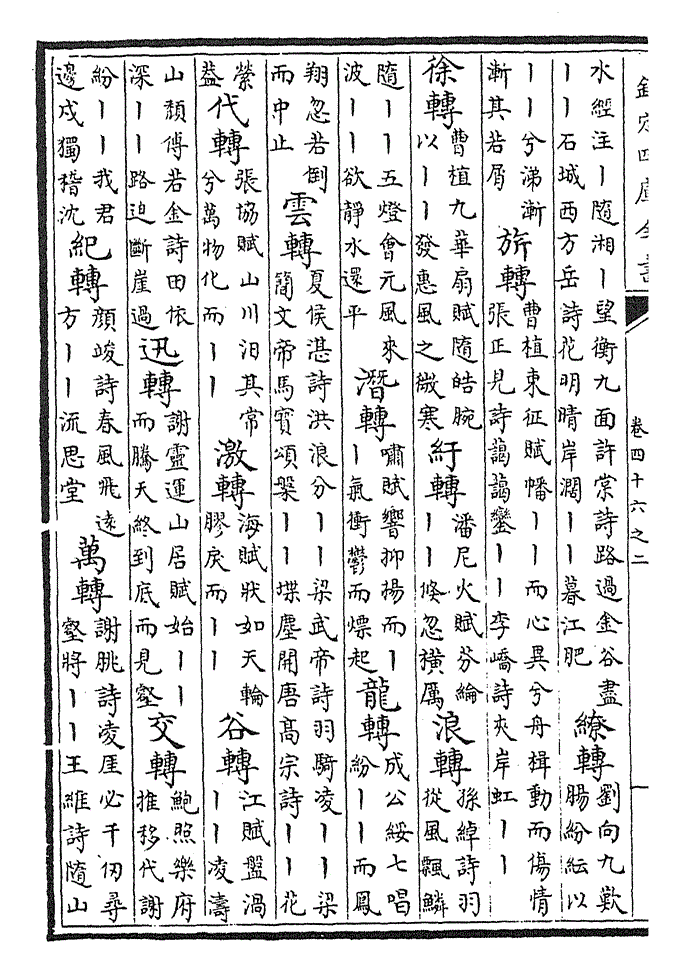 欽定四庫全書
卷四十六之二
水經注丨隨湘丨望衡九面許棠詩路過金谷盡
丨丨石城西方岳詩花明晴岸濶丨丨暮江肥
繚轉
劉向九歎
腸紛紜以
丨丨兮涕漸
漸其若屑
旂轉
曹植東征賦幡丨丨而心異兮舟楫動而傷情
張正見詩藹藹鑾丨丨李嶠詩夾岸虹丨丨
徐轉
曹植九華扇賦隨皓腕
以丨丨發惠風之微寒
紆轉
潘尼火賦芬綸
丨丨倏忽橫厲
浪轉
孫綽詩羽
從風飄鱗
隨丨丨五燈會元風來
波丨丨欲靜水還平
潛轉
嘯賦響抑揚而丨
丨氣衝鬱而熛起
龍轉
成公綏七唱
紛丨丨而鳳
翔忽若倒
而中止
雲轉
夏侯湛詩洪浪分丨丨梁武帝詩羽騎凌丨丨梁
簡文帝馬寳頌槃丨丨堞塵開唐高宗詩丨丨花
縈
蓋
代轉
張協賦山川汨其常
兮萬物化而丨丨
激轉
海賦狀如天輪
膠戾而丨丨
谷轉
江賦盤渦
丨丨凌濤
山頽傅若金詩田依
深丨丨路迫斷崖過
迅轉
謝靈運山居賦始丨丨
而騰天終到底而見壑
交轉
鮑照樂府
推移代謝
紛丨丨我君
邊戍獨稽沈
紀轉
顔竣詩春風飛遠
方丨丨流思堂
萬轉
謝朓詩凌厓必千仞尋
壑將丨丨王維詩隨山